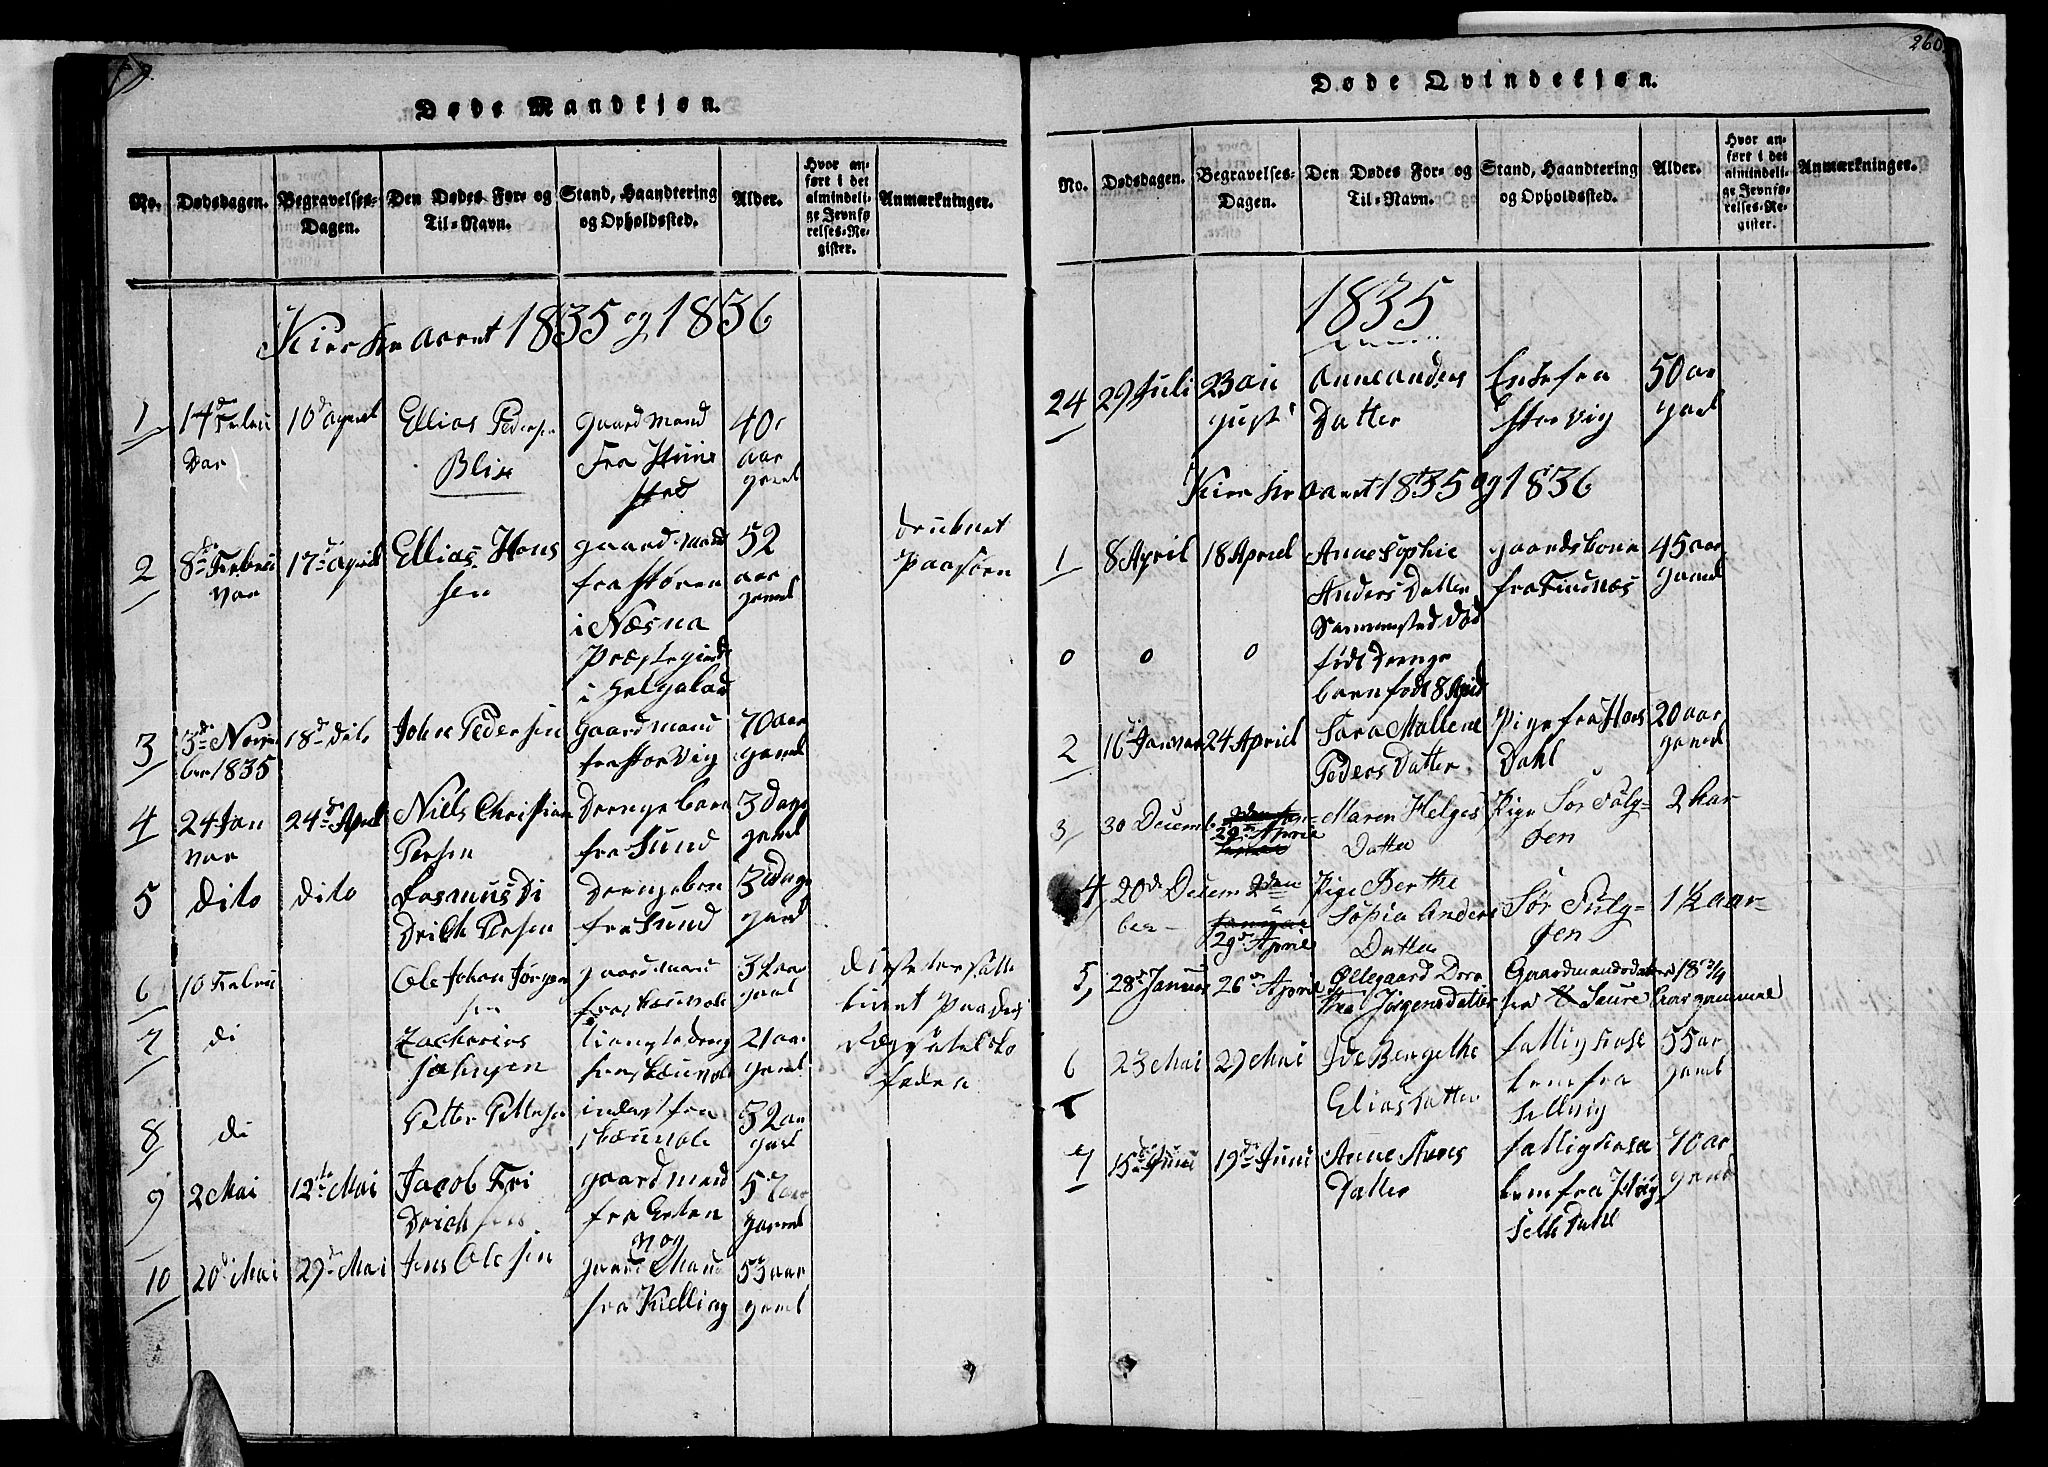 Døde Mandkjøn.
No.
Dødsdagen.
Begravelses-
Dagen.
Den Dødes For- og
Til-Navn.
Stand, Haandtering
og Opholdssted.
Alder.
Hvor an-
ført i det
almindeli-
ge Jevnfø
relses-Re-
gister.
Anmærkninger.
Kirke aaret 1835 og 1836
1
14de Febru
var
10d april
Ellias Pedersen
Blix
gaardmand
Fra
40
aar
gaml
2
8de Februar
17d april
Ellias Hans
sen
gaardmand
fra Støren
i Næsna
Præstegield
i Helgeland
52
aar
gaml
druknet
Paa Søen
3
3de Novem
ber 1835
18d dito
John Pedersen
Gaardmand
fra Storvig
70 aar
gaml
4
24 Jan
var
24d April
Niels Christian
Persen
Drengebarn
fra Sund
3 dage
gaml
5
dito
dito
Rasmus Di
Drich Persen
Drengebarn
fra Sund
3 dage
gaml
6
10 Febru
Ole Johan Jørgen
sen
gaardmand
fra
32 aar
gaml
7
di
Zacharias
Johnsen
fra
21 aar
gaml
8
di
Petter Pettersen
inderst fra
32 aar
gaml
9
2 Mai
12te Mai
Jacob Fri
Drichsen
gaardmand
fra Erten
vog
57 aar
gaml
10
20d Mai
29d Mai
Jens Olesen
gaard Mand
fra Kielling
53 aar
gaml
260
Døde Qvindekjøn.
No.
Dødsdagen.
Begravelses-
Dagen.
Den Dødes For- og
Til-Navn.
Stand, Haandtering
og Opholdssted.
Alder.
Hvor an-
ført i det
almindeli-
ge Jevnfø-
relses-Re-
gister.
Anmærkninger.
1835
24
29 Juli
23 au
gust
Anne Anders
Datter
Enke fra
Storvig
50 aar
gaml
Kirke aaret 1835 og 1836
1
8 April
18 April
Anne Sophie
Anders Datter
Sammested død
født Drenge
barn født 8 April
gaardskone
fra Finsnæs
45 aar
gaml
0
0
0
2
16d Januar
24 April
Sara Mallene
Peders Datter
Pige fra Hors
Dahl
20 aar
gaml
3
30 Decemb
29de April
Maren Helges
Datter
Pige Sør Fulg-
øen
2 aar
4
20de Decem
ber
2den
Januar
29de April
Pige Berthe
Sophia Anders
Datter
Sør Fulg-
øen
1 1/2 aar
5
28d Januar
26de April
Ollegaard Doro
thea Jørgensdatter
Gaardmandsdatter
fra Saure
18 3/4
aar gammel
6
23 Mai
29 Mai
Ide Bergethe
Elias datter
fattig Huse
lem fra
Sellvig
55 aar
gaml
7
15de Juni
19de Juni
Anne Arnes
Datter
fattig Huse
lem fra
70 aar
gaml